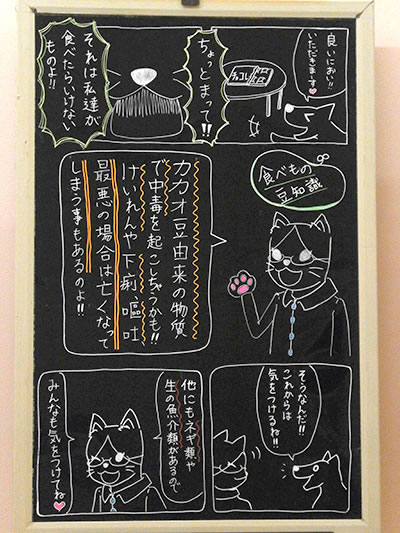 良いにおい!!
いただきまーす♥
チョコレート
ちょっとまって!!
それは私達が
食べたらいけない
ものよ!!
食べもの
豆知識
カカオ豆由来の物質
で中毒を起こしちゃうかも!!
けいれんや下痢、嘔吐
最悪の場合は亡くなって
しまう事もあるのよ!!
そうなんだ!!
これからは
気をつけるね!!
他にもネギ類や
生の魚介類があるので
みんなも気をつけてね♥